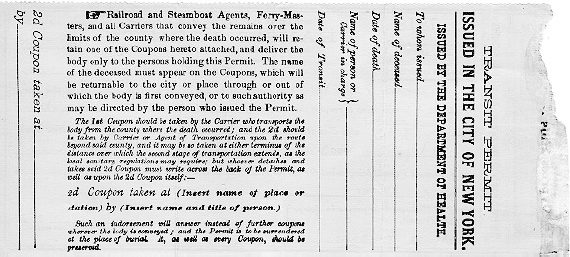 ☞ Railroad and Steamboat Agents, Ferry-Mas-
ters, and all Carriers that convey the remains over the
limits of the county where the death occurred, will re-
tain one of the Coupons hereto attached, and deliver the
body only to the persons holding this Permit. The name
of the deceased must appear on the Coupons, which will
be returnable to the city or place through or out of
which the body is first conveyed, or to such authority as
may be directed by the person who issued the Permit.
The 1st Coupon should be taken by the Carrier who transports the
body from the county where the death occurred; and the 2d should
be taken by Carrier or Agent of Transportation upon the route
beyond said county, and it may be so taken at either terminus of the
distance over which the second stage of transportation extends, as the
local sanitary regulations may require; but whoever detaches and
takes said 2d Coupon must write across the back of the Permit, as
well as upon the 2d Coupon itself:—
2d Coupon taken at (Insert name of place or
station) by (Insert name and title of person.)
Such an indorsement will answer instead of further coupons
wherever the body is conveyed; and the Permit is to be surrendered
at the place of burial. It, as well as every Coupon, should be
preserved.
2d Coupon taken at
by
TRANSIT PERMIT
ISSUED IN THE CITY OF NEW YORK.
ISSUED BY THE DEPARTMENT OF HEALTH.
To whom issued
Name of deceased
Date of death
Name of person or
Carrier in charge }
Date of Transit